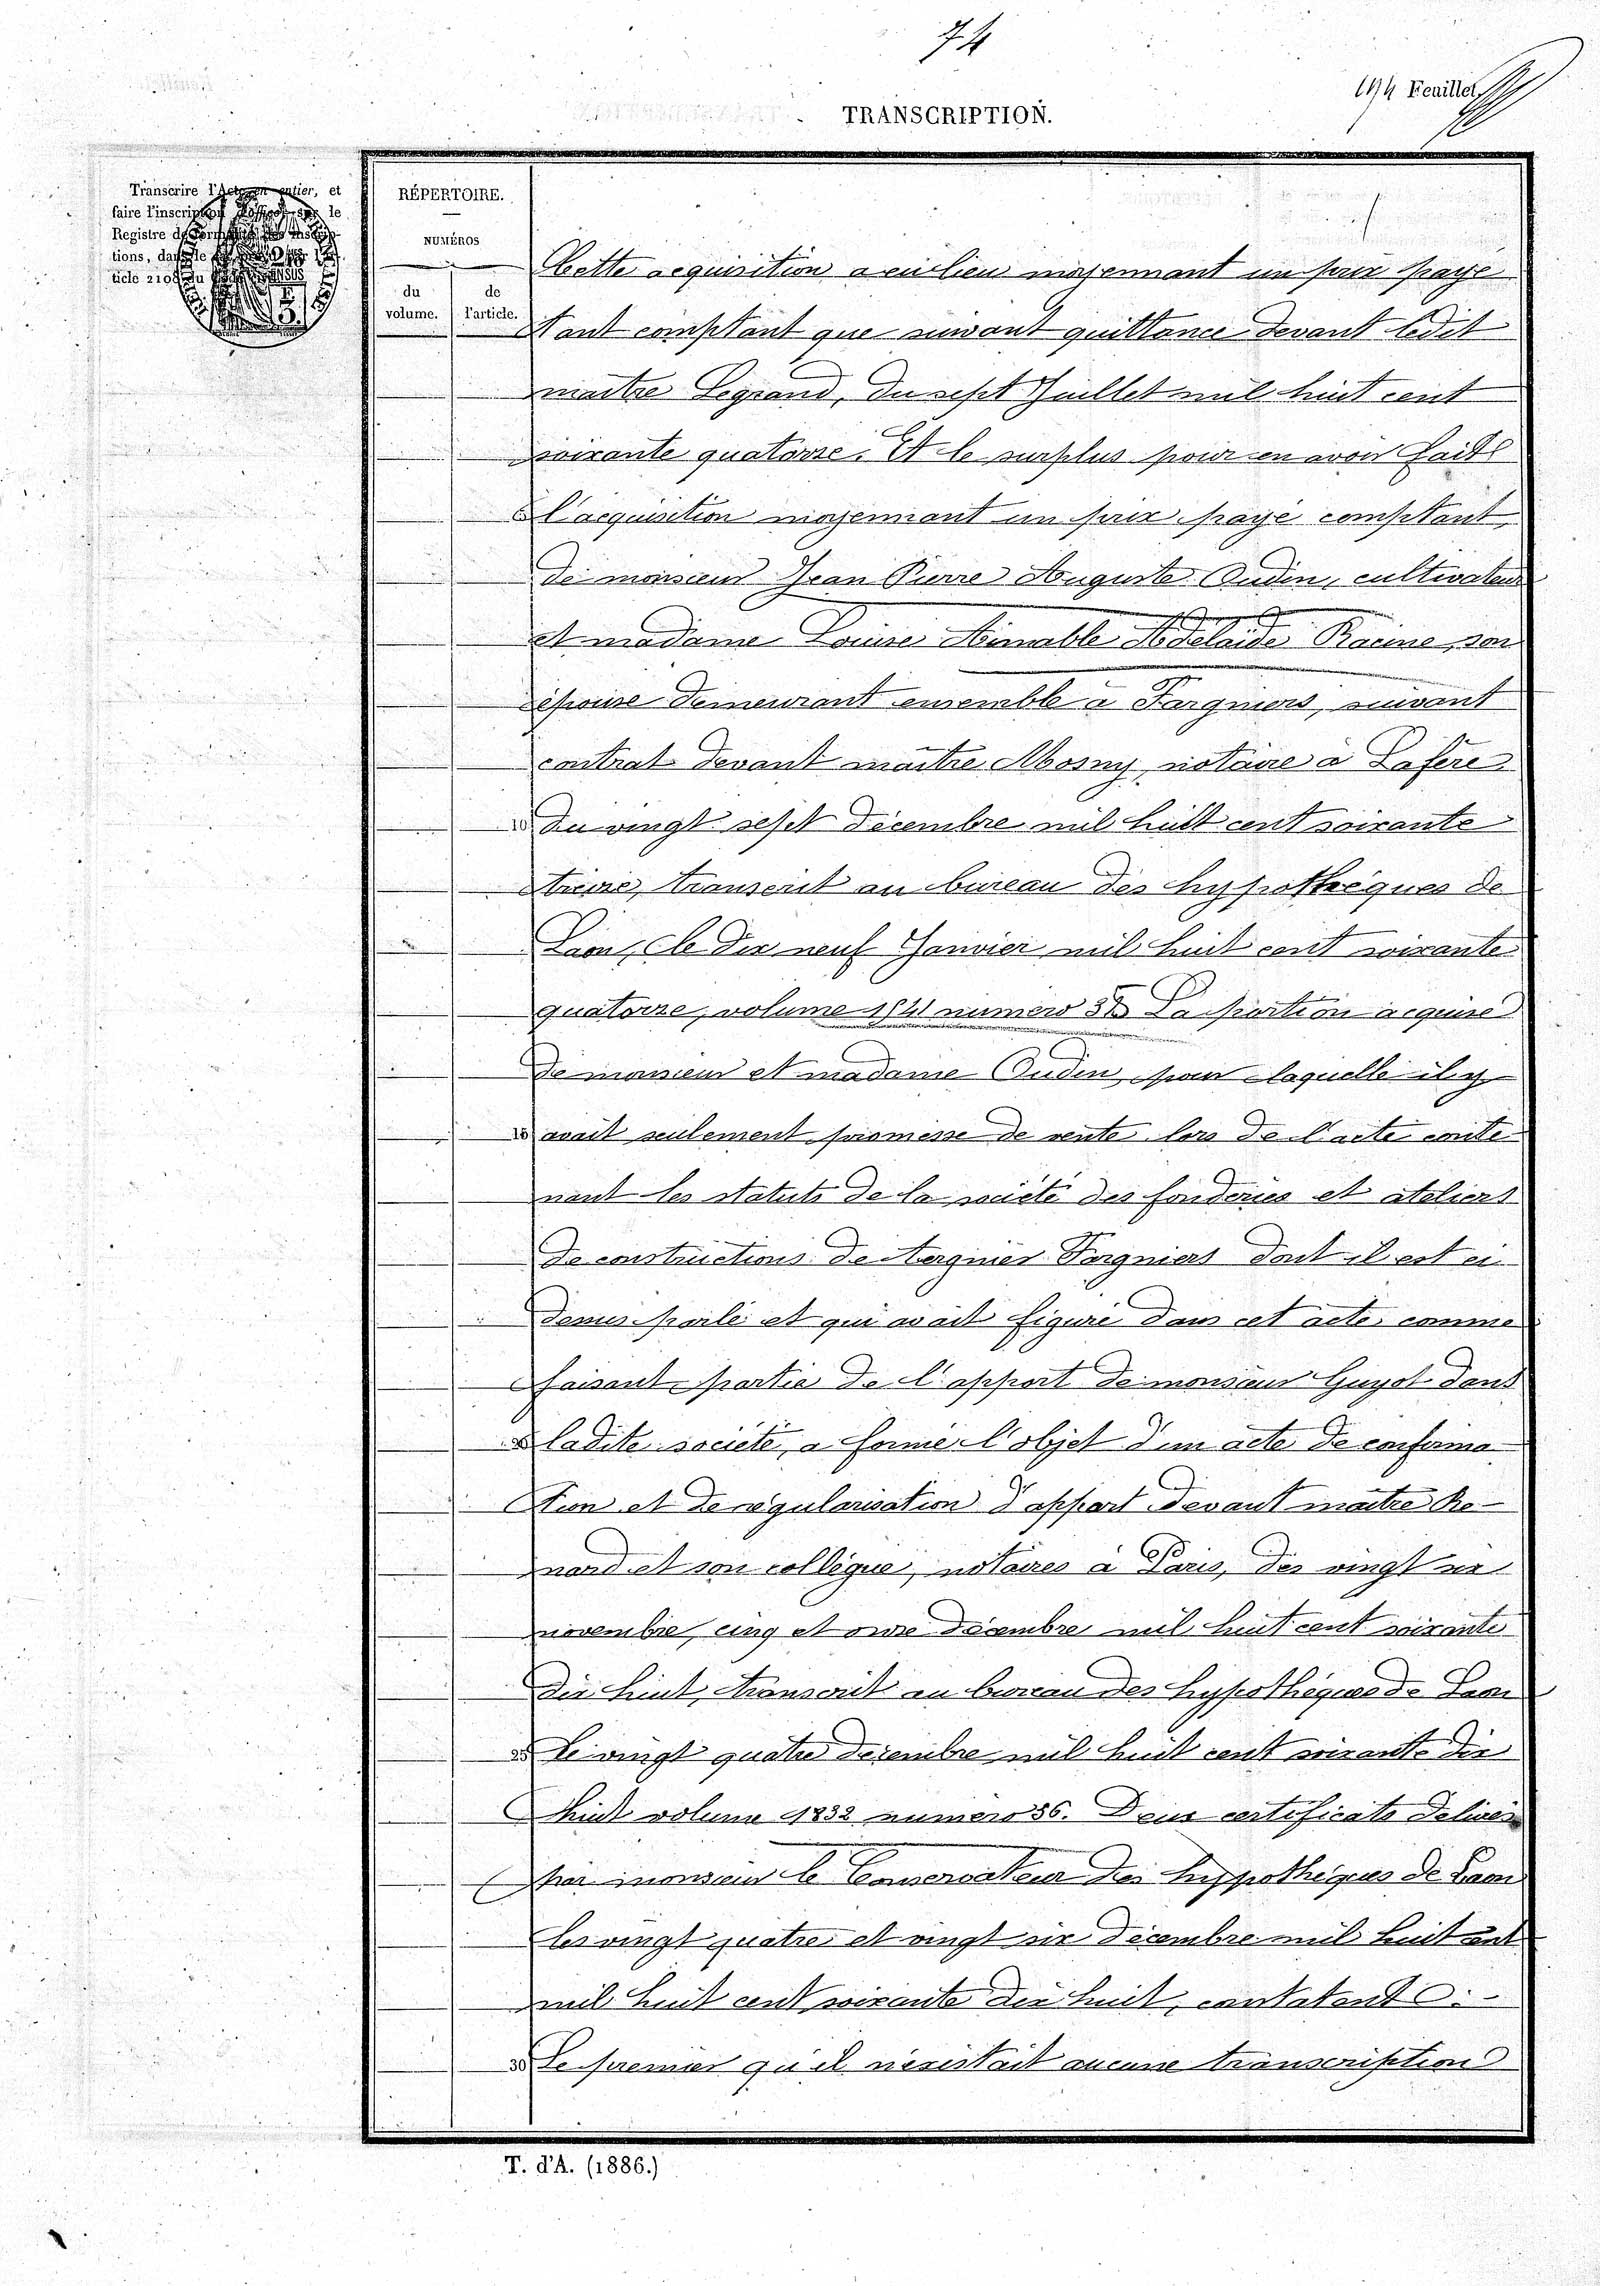 74
194 Feuillet
TRANSCRIPTION.
Transcrire l'Acte en entier, et
faire l'inscription d'office sur le
Registre de
tions, dans le
ticle 2108 du
RÉPERTOIRE.
NUMÉROS
du volume.
de l'article.
Cette acquisition a eu lieu moyennant un prix payé
tant comptant que suivant quittance devant ledit
maître Legrand, du sept Juillet mil huit cent
soixante quatorze. Et le surplus pour en avoir fait
l'acquisition moyennant un prix payé comptant,
de monsieur Jean Pierre Auguste Oudin, cultivateur
et madame Louise Aimable Adelaïde Racine, son
épouse demeurant ensemble à Fargniers, suivant
contrat devant maître Mosny, notaire à Lafère
10 du vingt sept décembre mil huit cent soixante
treize, transcrit au bureau des hypothèques de
Laon, le dix neuf Janvier mil huit cent soixante
quatorze, volume numéro La portion acquise
de monsieur et madame Oudin, pour laquelle il y
15 avait seulement promesse de vente lors de l'acte conte-
nant les statuts de la société des fonderies et ateliers
de constructions de Tergnier Fargniers dont il est ci
dessus parlé et qui avait figuré dans cet acte comme
faisant partie de l'apport de monsieur Guyot dans
20 ladite société, a formé l'objet d'un acte de confirma-
tion et de régularisation d'apport devant maître Re-
nard et son collègue, notaires à Paris, des vingt six
novembre, cinq et onze décembre mil huit cent soixante
dix huit, transcrit au bureau des hypothèques de Laon
25 le vingt quatre décembre mil huit cent soixante dix
huit volume 1832 numéro 36. Deux certificats délivrés
par monsieur le Conservateur des hyppothèques de Laon
les vingt quatre et vingt six décembre mil huit cent
mil huit cent soixante dix huit, constatent :-
30 Le premier qu'il n'existait aucune transcription
T. d'A. (1886.)